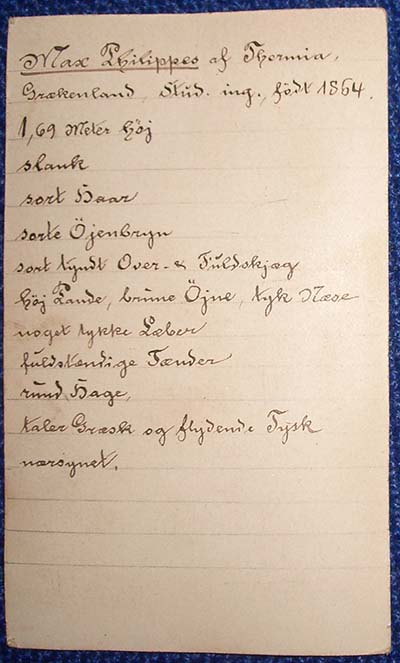 Max Philippes af Thermia,
Grækenland, Stud. ing., født 1864.
1,69 Meter høj
slank
sort Haar
sorte Öjenbryn
sort tyndt Over- & Fuldskjæg
høj Pande, brune Öjne, tyk Næse
noget tykke Læber
fuldstændige Tænder
rund Hage,
taler Græsk og flydende Tysk
nærsynet.